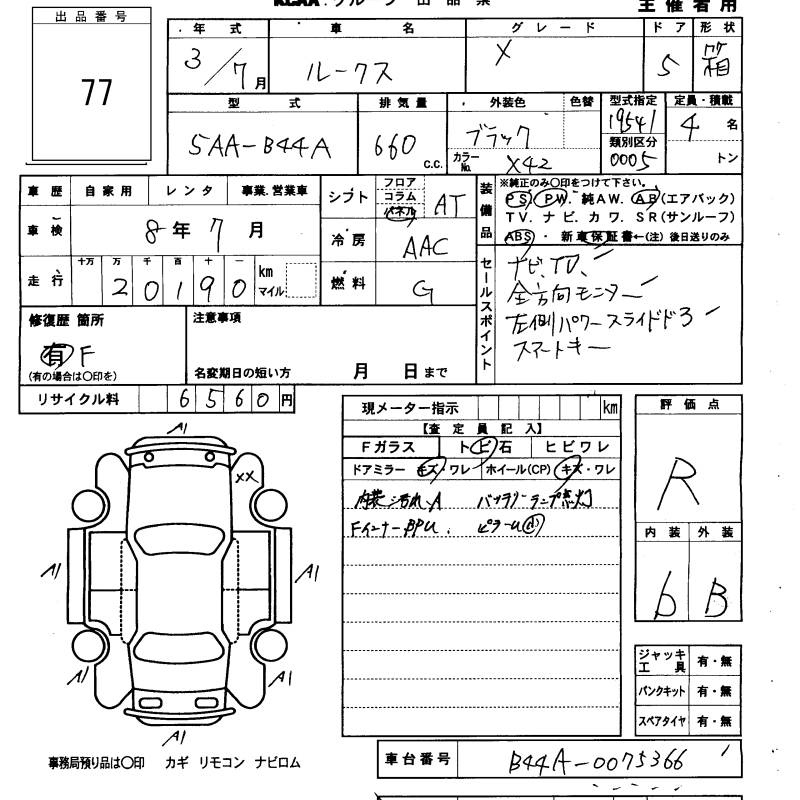 主催者用
出品番号
77
年式 車名 グレード ドア 形状
3/7月 ルークス X 5 箱
型式 排気量 外装色 色替 型式指定 定員・積載
5AA-B44A 660 c.c. ブラック 19541 4名
カラーNo. X42 類別区分 0005 トン
車歴 自家用 レンタ 事業.営業車
車検 8年7月
走行 十万 万 千 百 十 一 km マイル
20190
シフト フロア コラム パネル AT
冷房 AAC
燃料 G
装備品 ※純正のみ〇印をつけて下さい。
PS. PW. 純AW. AB(エアバック)
TV. ナビ. カワ. SR(サンルーフ)
ABS・ 新車保証書←(注) 後日送りのみ
セールスポイント
ナビ、TV、
全方向モニター
左側パワースライドドア
スマートキー
修復歴 箇所
有 F
(有の場合は〇印を)
注意事項
名変期日の短い方 月 日まで
リサイクル料 6560円
現メーター指示 km
【査定員記入】
Fガラス トビ石 ヒビワレ
ドアミラー キズ・ワレ ホイール(CP) キズ・ワレ
内装ヨゴレA バッテリーランプ点灯
FインナーBPU.
評価点
R
内装 外装
b B
ジャッキ工具 有・無
パンクキット 有・無
スペアタイヤ 有・無
A1
XX
A1 A1
A1 A1
A1
事務局預り品は〇印 カギ リモコン ナビロム
車台番号 B44A-0075366